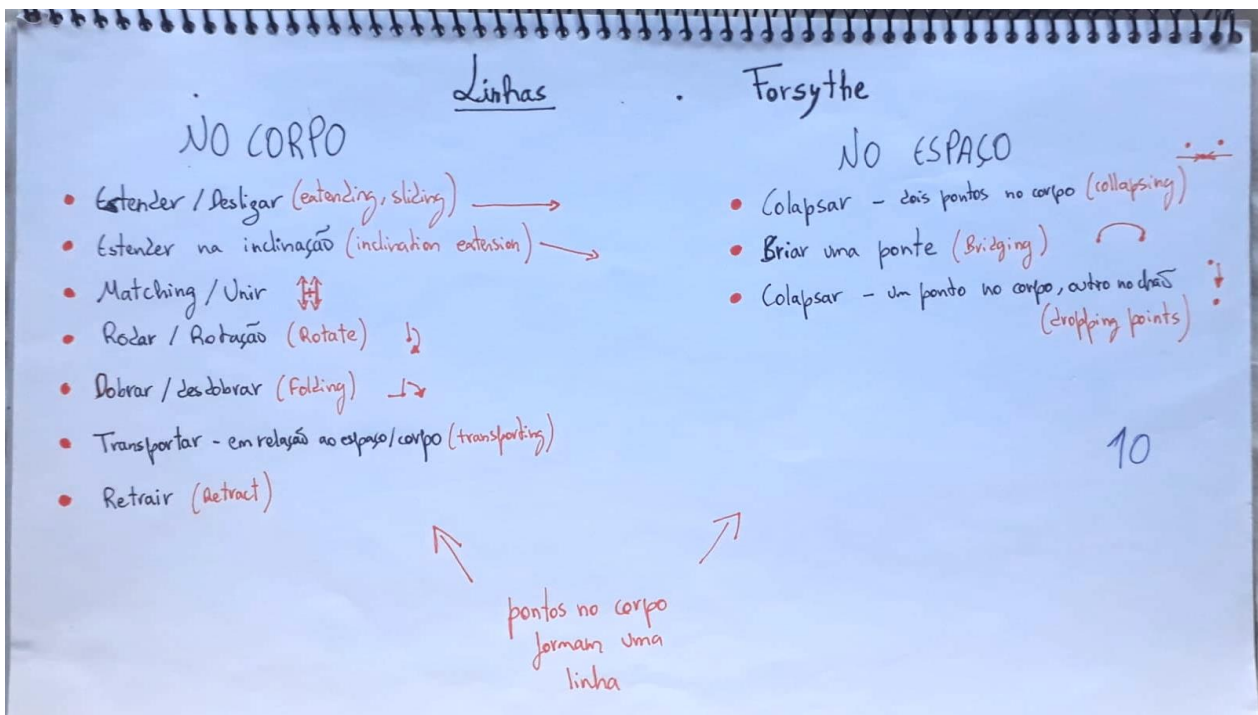 Linhas . Forsythe
NO CORPO
• Estender / Desligar (extending, sliding)
• Estender na inclinação (inclination extension)
• Matching / Unir
• Rodar / Rotação (Rotate)
• Dobrar / desdobrar (Folding)
• Transportar - em relação ao espaço/corpo (transporting)
• Retrair (Retract)
NO ESPAÇO
• Colapsar - dois pontos no corpo (collapsing)
• Briar uma ponte (Bridging)
• Colapsar - um ponto no corpo, outro no chão
(dropping points)
10
pontos no corpo
formam uma
linha